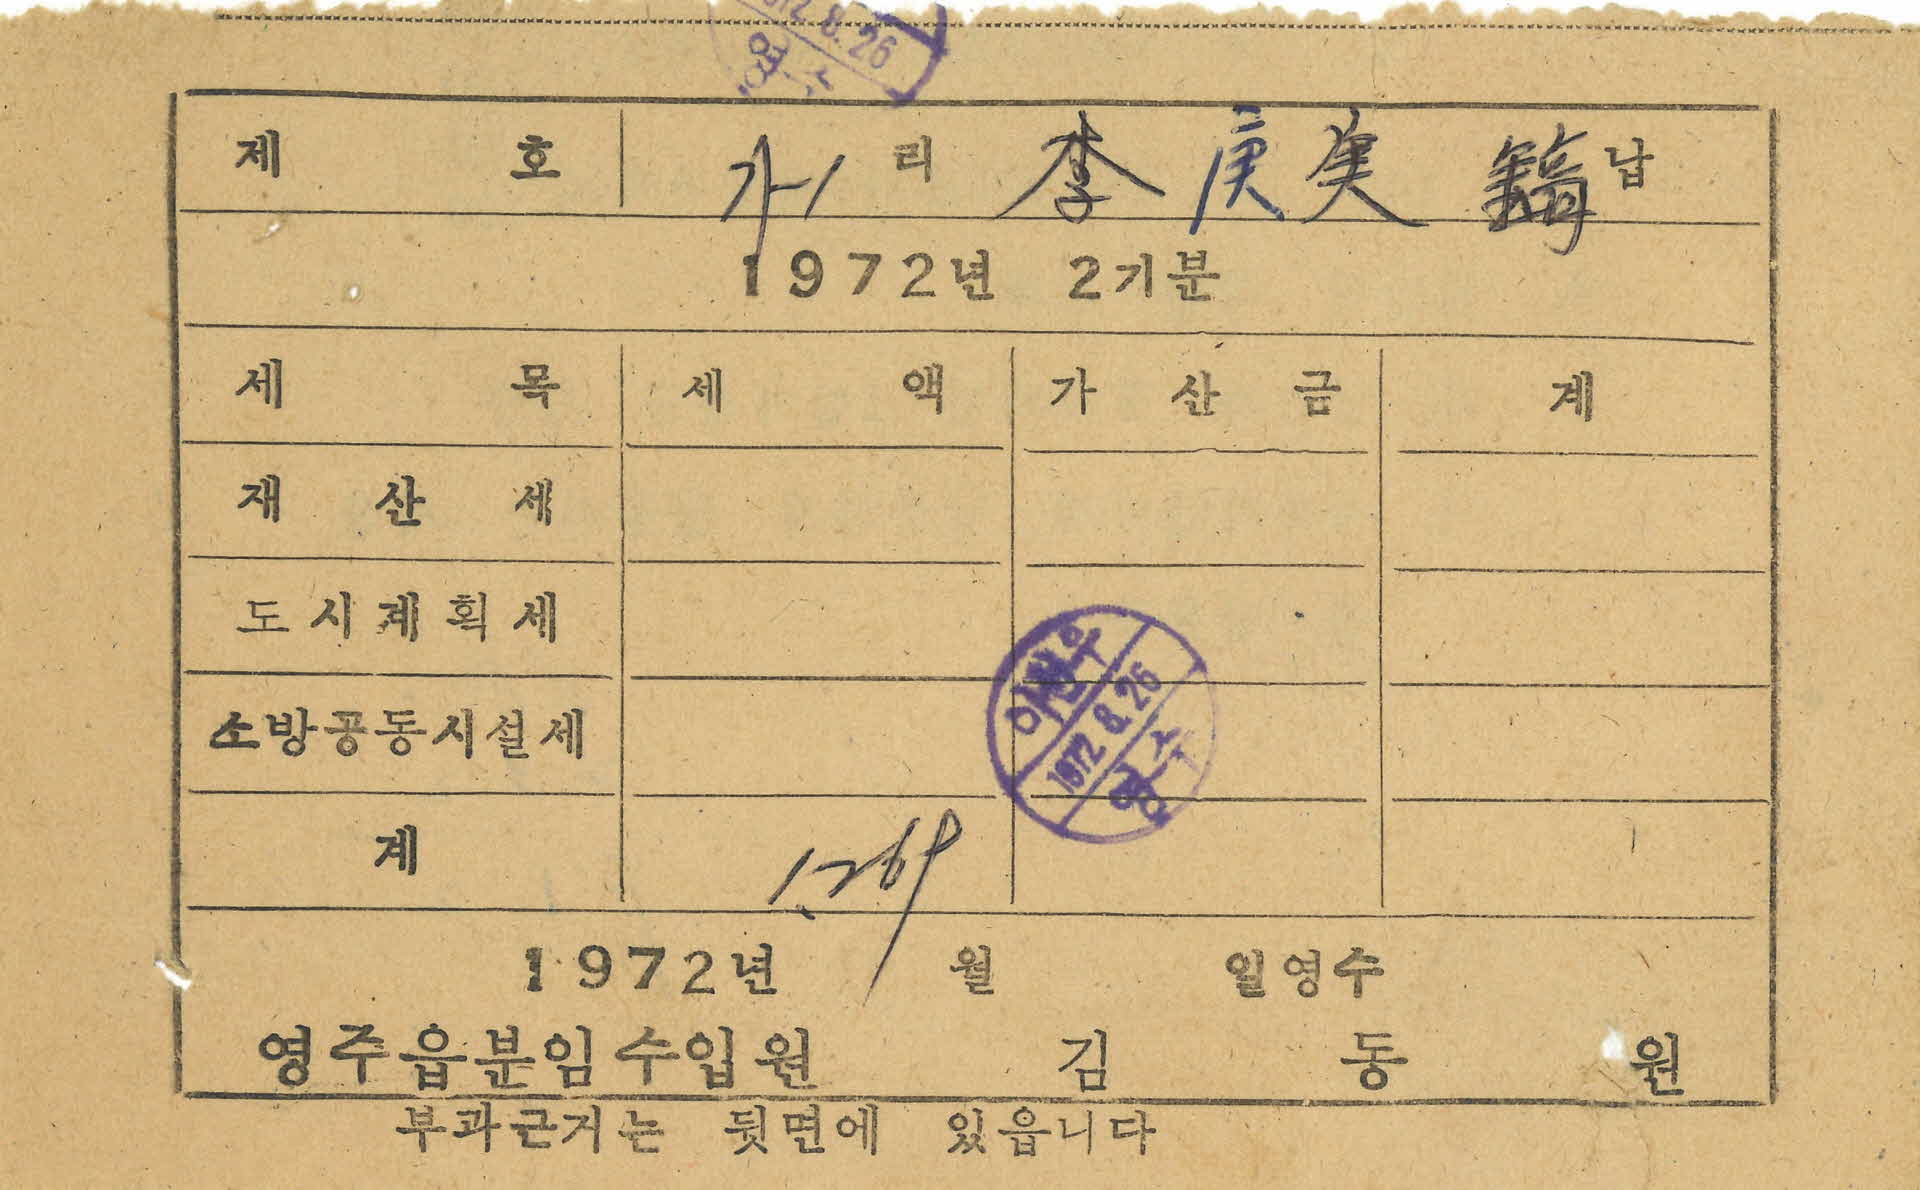 1972.8.26
영수
제 호 가1 리 李 庚 鎬 납
1972년 2기분
세 목 세 액 가 산 금 계
재 산 세
도시계획세
소방공동시설세
계 1,269
1972 8.26
영수
1972년 월 일영수
영주읍분임수입원 김 동 원
부과근거는 뒷면에 있읍니다